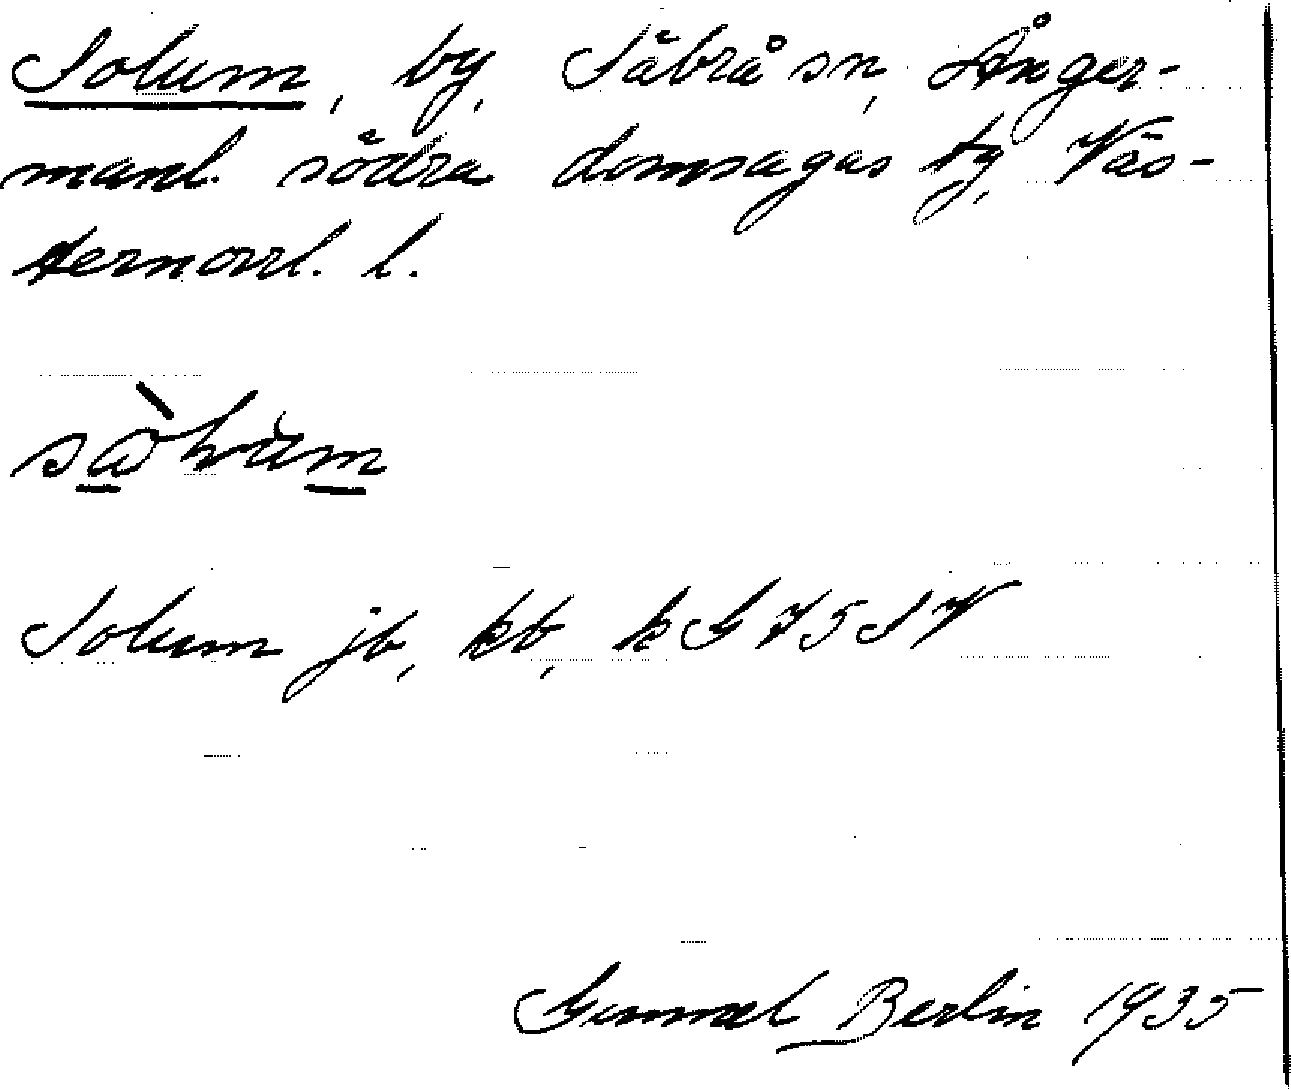 Solum, by, Säbrå sn, Ånger-
manl. södra domsagas tg, Väs-
ternorrl. l.
Solum jb, kb, k G 75 S V
Gunnel Berlin 1935